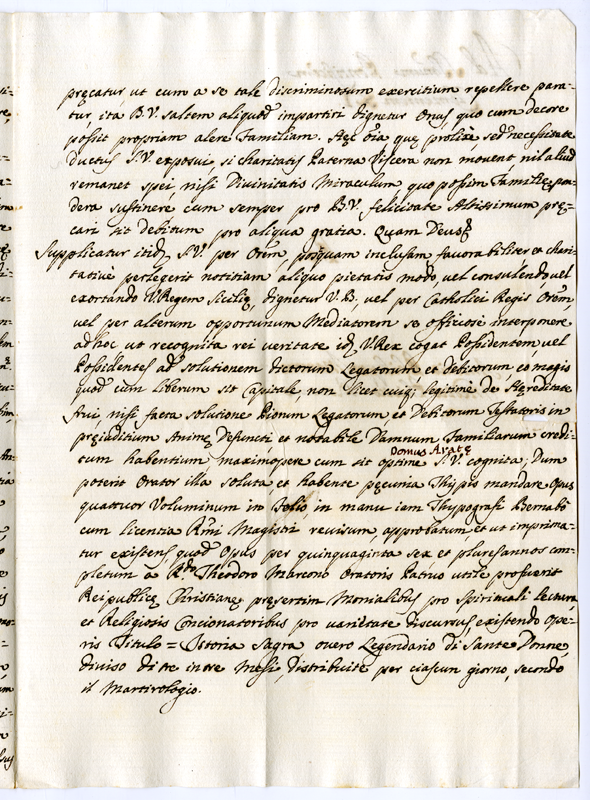 pręcatur ut cum a se tale discriminosum exercitium repellere para-
tur, ita B.V. saltem aliquod impartiri dignetur Onus, quo cum decore
possit propriam alere Familiam. Hęc oĩa quę prolixè, sed necessitate
ductus S.V. exposui, si charitatis Paterna Viscera non mouent, nil aliud
remanet spei, nisi Divinitatis Miraculum, quo possim Familię pon-
dera sustinere cum semper pro B.V. felicitate Altissimum prę-
cari sit debitum pro aliqua gratia. Quam Deus
Supplicatur itid, S.V. per Orem, posquam inclusam favorabiliter, et chari-
tative perlegerit notitiam aliquo pietatis modo, vel consulendo, vel
exortando V.Regem Sicilię, dignetur V.B., vel per Catholici Regis Orem,
vel per alterum opportunum Mediatorem se officiose interponere
ad hoc ut recognita rei veritate id, V.Rex cogat Possidentem, vel
Possidentes ad solutionem dictorum Legatorum et debitorum eo magis
quod cum liberum sit Capitale, non licet cuiq; legitime de Hęreditate
frui, nisi facta solutione Piorum Legatorum et Debitorum Testatoris in
pręiuditium Animę Defuncti, et notabile Damnum Familiarum credi-
Domus Aratę
tum habentium maximopere cum sit optime S.V. cognita; Dum
poterit Orator illa soluta, et habente pęcunia Thypis mandare Opus
quatuor Voluminum in Folio, in manu iam Thypografi Bernabò
cum licentia Rmi Magistri revisum, approbatum, et ut imprima-
tur existens, quod Opus per quinquaginta sex et plures annos con-
pletum a Rdo Theodoro Marcono Oratoris Patruo utile profuerit
Reipublicę Christianę, pręsertim Monialibus pro Spirituali lectura,
et Religiosis Concionatoribus pro varietate discursus, existendo Ope-
ris Titulo = Istoria Sagra overo Legendario di Sante Donne,
diviso di tre in tre Mesi distribuite per ciascun giorno, secondo
il Martirologio.